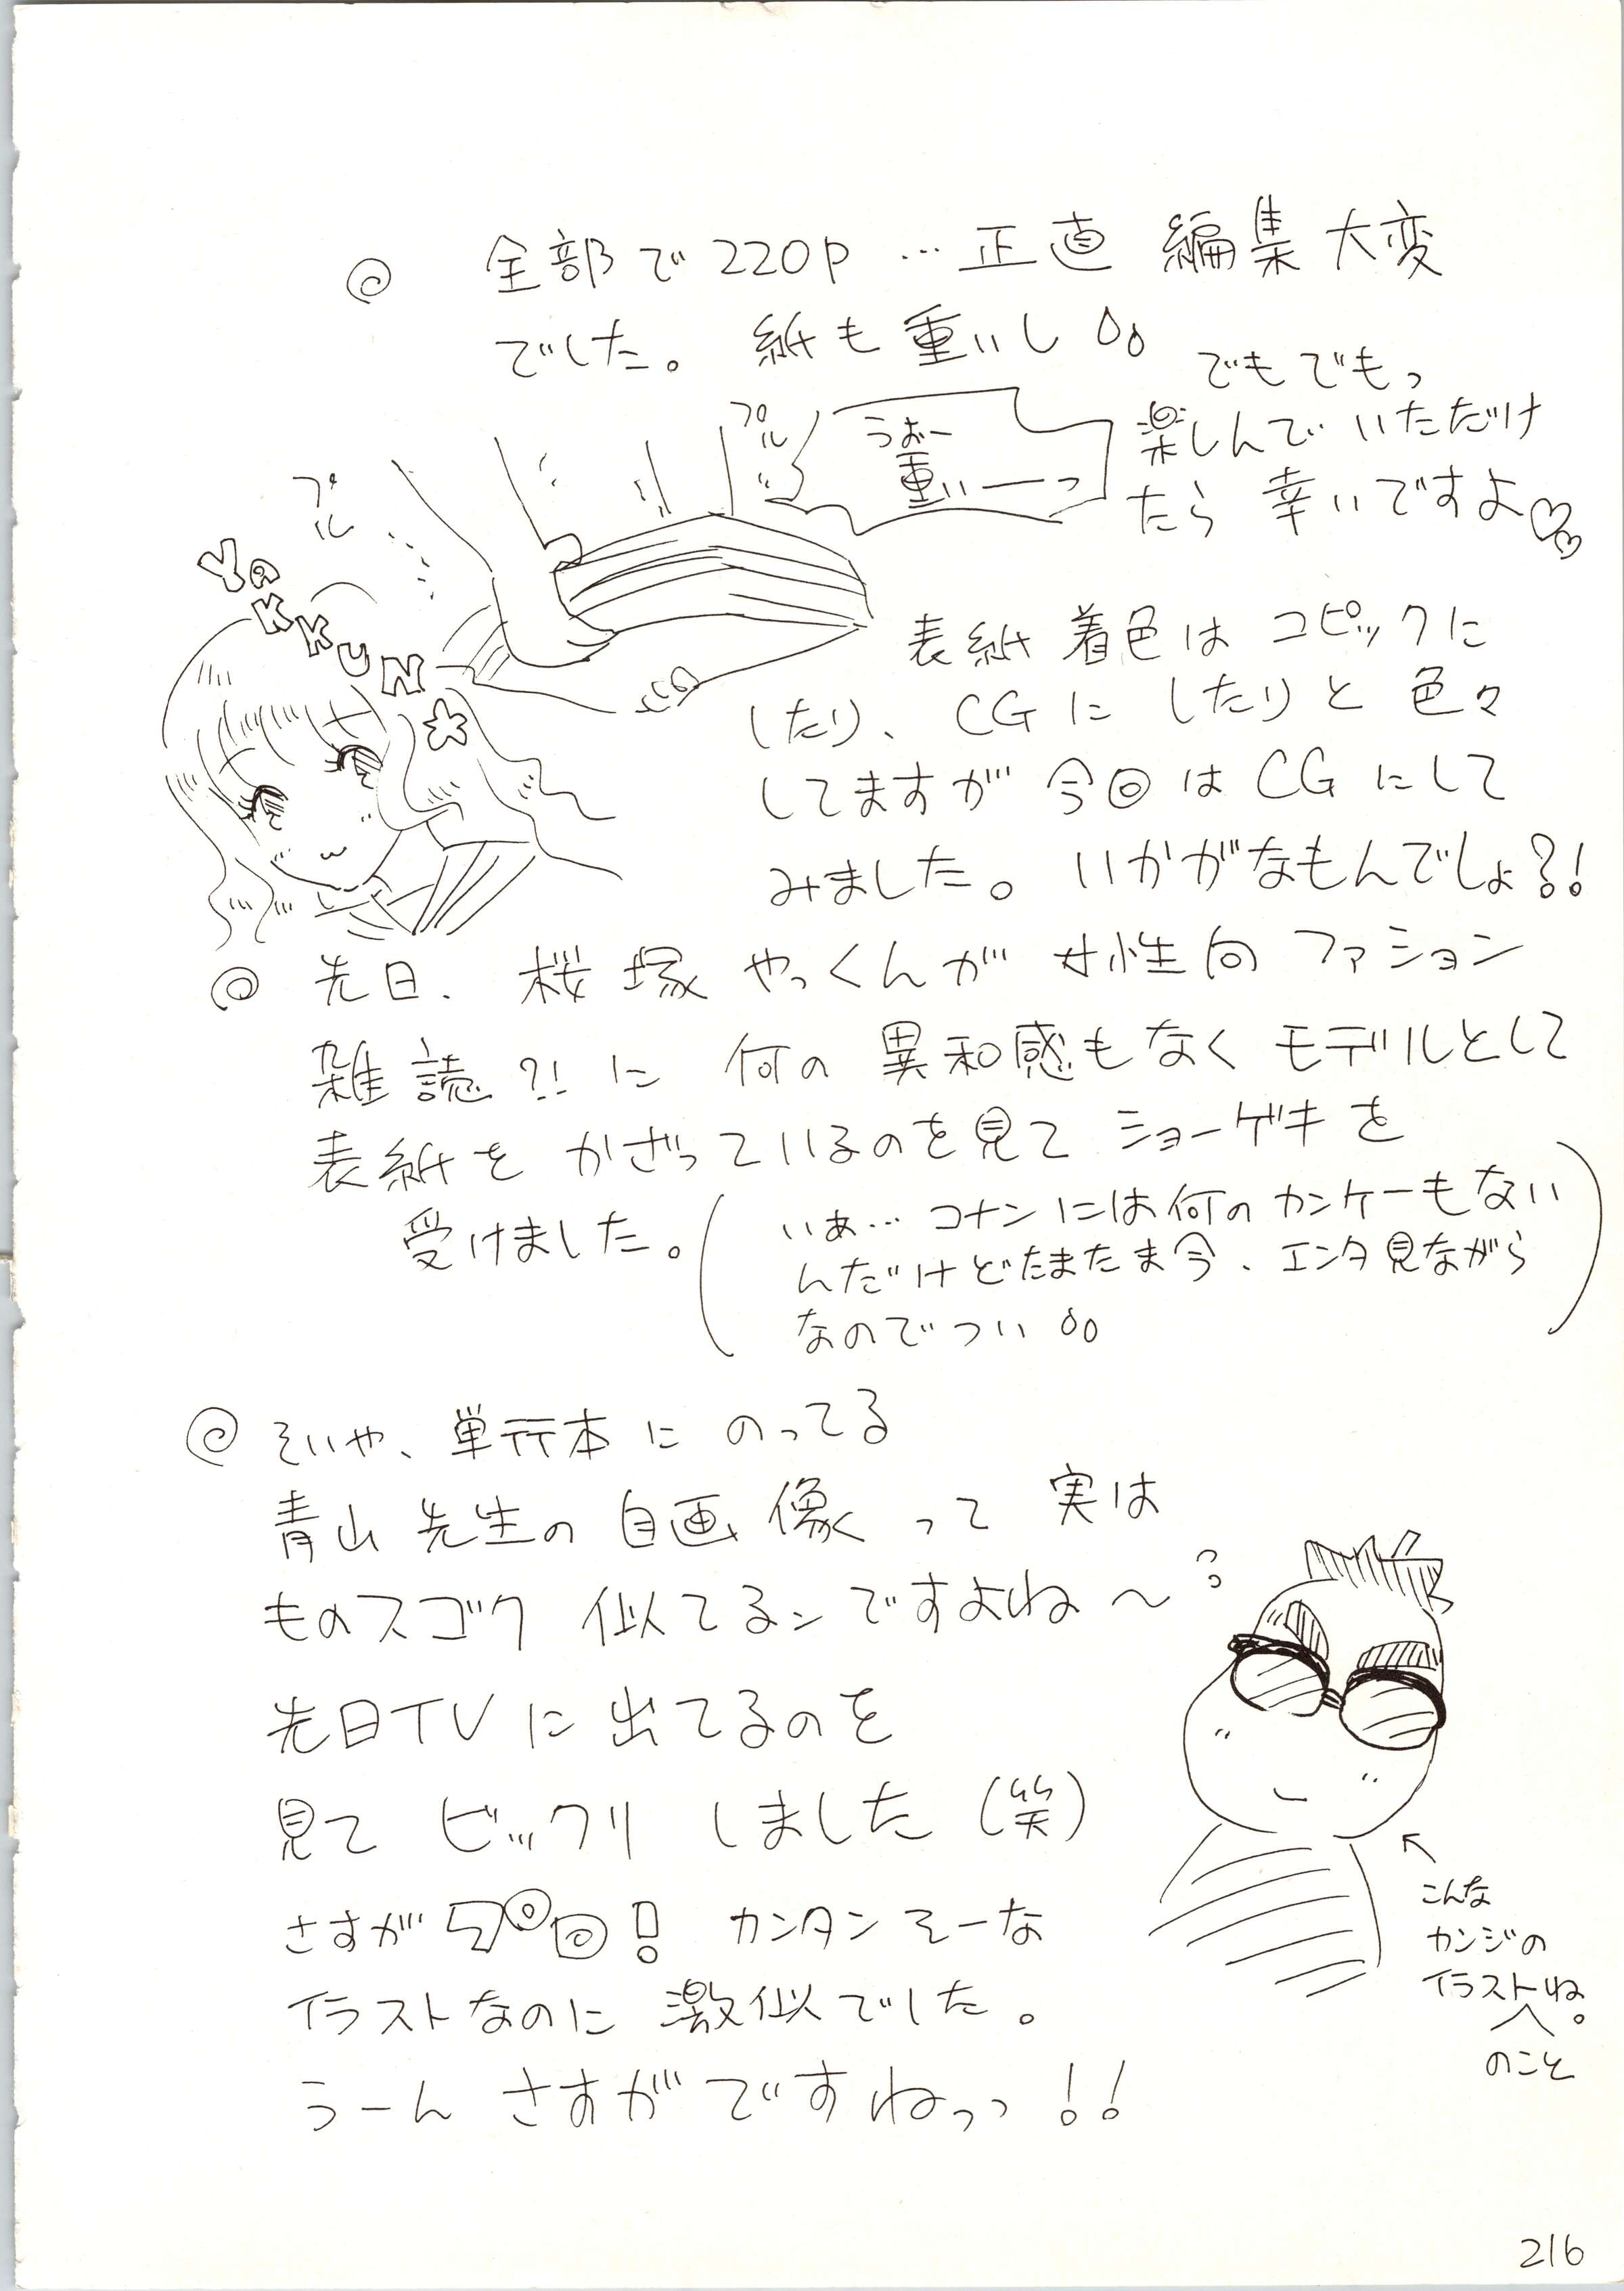 全部で220P…正直 編集大変
でした。紙も重いし
でもでもっ
楽しんでいただけ
たら 幸いですよ♡♡
プル
プル
うおー
重いーっ
YAKKUN☆
表紙着色は コピックに
したり、CGにしたりと 色々
してますが 今回はCGにして
みました。いかがなもんでしょ?!
◎ 先日、桜塚やっくんが 女性向ファション
雑誌?!に 何の異和感もなくモデルとして
表紙を かざっているのを見て ショーゲキを
受けました。
(いぁ…コナンには何のカンケーもない
んだけどたまたま今、エンタ見ながら
なのでつい)
◎ そいや、単行本に のってる
青山先生の 自画像って 実は
ものスゴク 似てるンですよね〜
先日TVに出てるのを
見て ビックリ しました(笑)
さすがプロ! カンタンそーな
イラストなのに 激似でした。
うーん さすがですねっっ!!
←こんな
カンジの
イラストね。
のこと
216